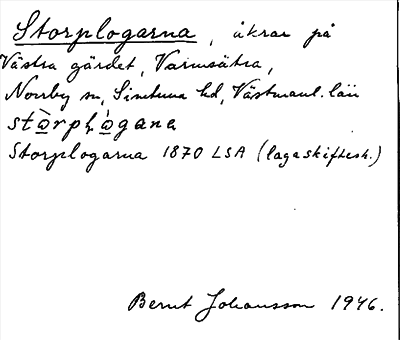 Storplogarna, åkrar på
Västra gärdet, Varmsätra,
Norrby sn, Simtuna hd, Västmanl. län
stɷ̀rpḷɷ̀gana
Storplogarna 1870 LSA (lagaskiftesh.)
Bernt Johansson 1946.